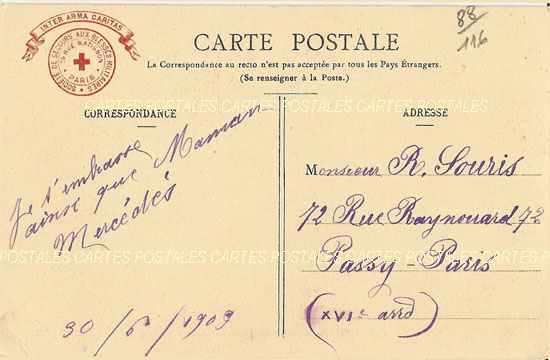 INTER ARMA CARITAS
SOCIÉTÉ DE SECOURS AUX BLESSÉS MILITAIRES
19 RUE MATIGNON
PARIS
CARTE POSTALE
88
116
La Correspondance au recto n'est pas acceptée par tous les Pays Étrangers.
(Se renseigner à la Poste.)
CARTES POSTALES CARTES POSTALES CARTES POSTALES
CORRESPONDANCE
ADRESSE
Je t'embrasse
ainsi que Maman
Mercédés
30/6/1909
Monsieur R. Souris
72 Rue Raynouard 72
Passy-Paris
(XVIe arrd)
CARTES POSTALES CARTES POSTALES CARTES POSTALES